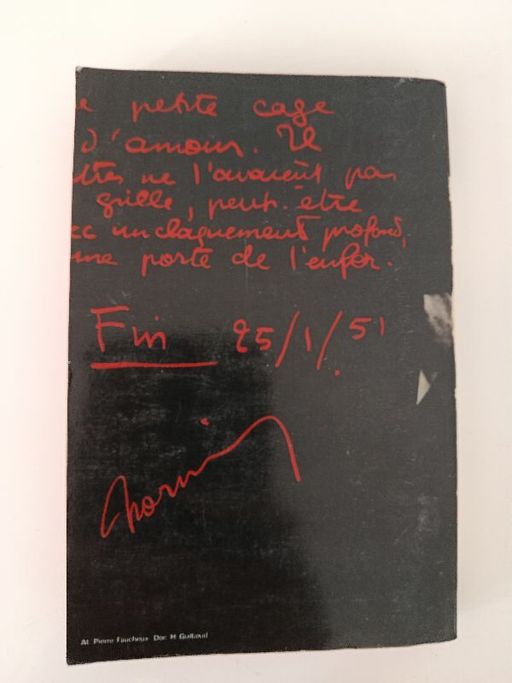 e petite cage
d'amour. Il
ttres ne l'avaient pas
grille, peut-être
ec un claquement profond,
une porte de l'enfer.
Fin 25/1/51
At. Pierre Faucheux Doc H. Guilbaud